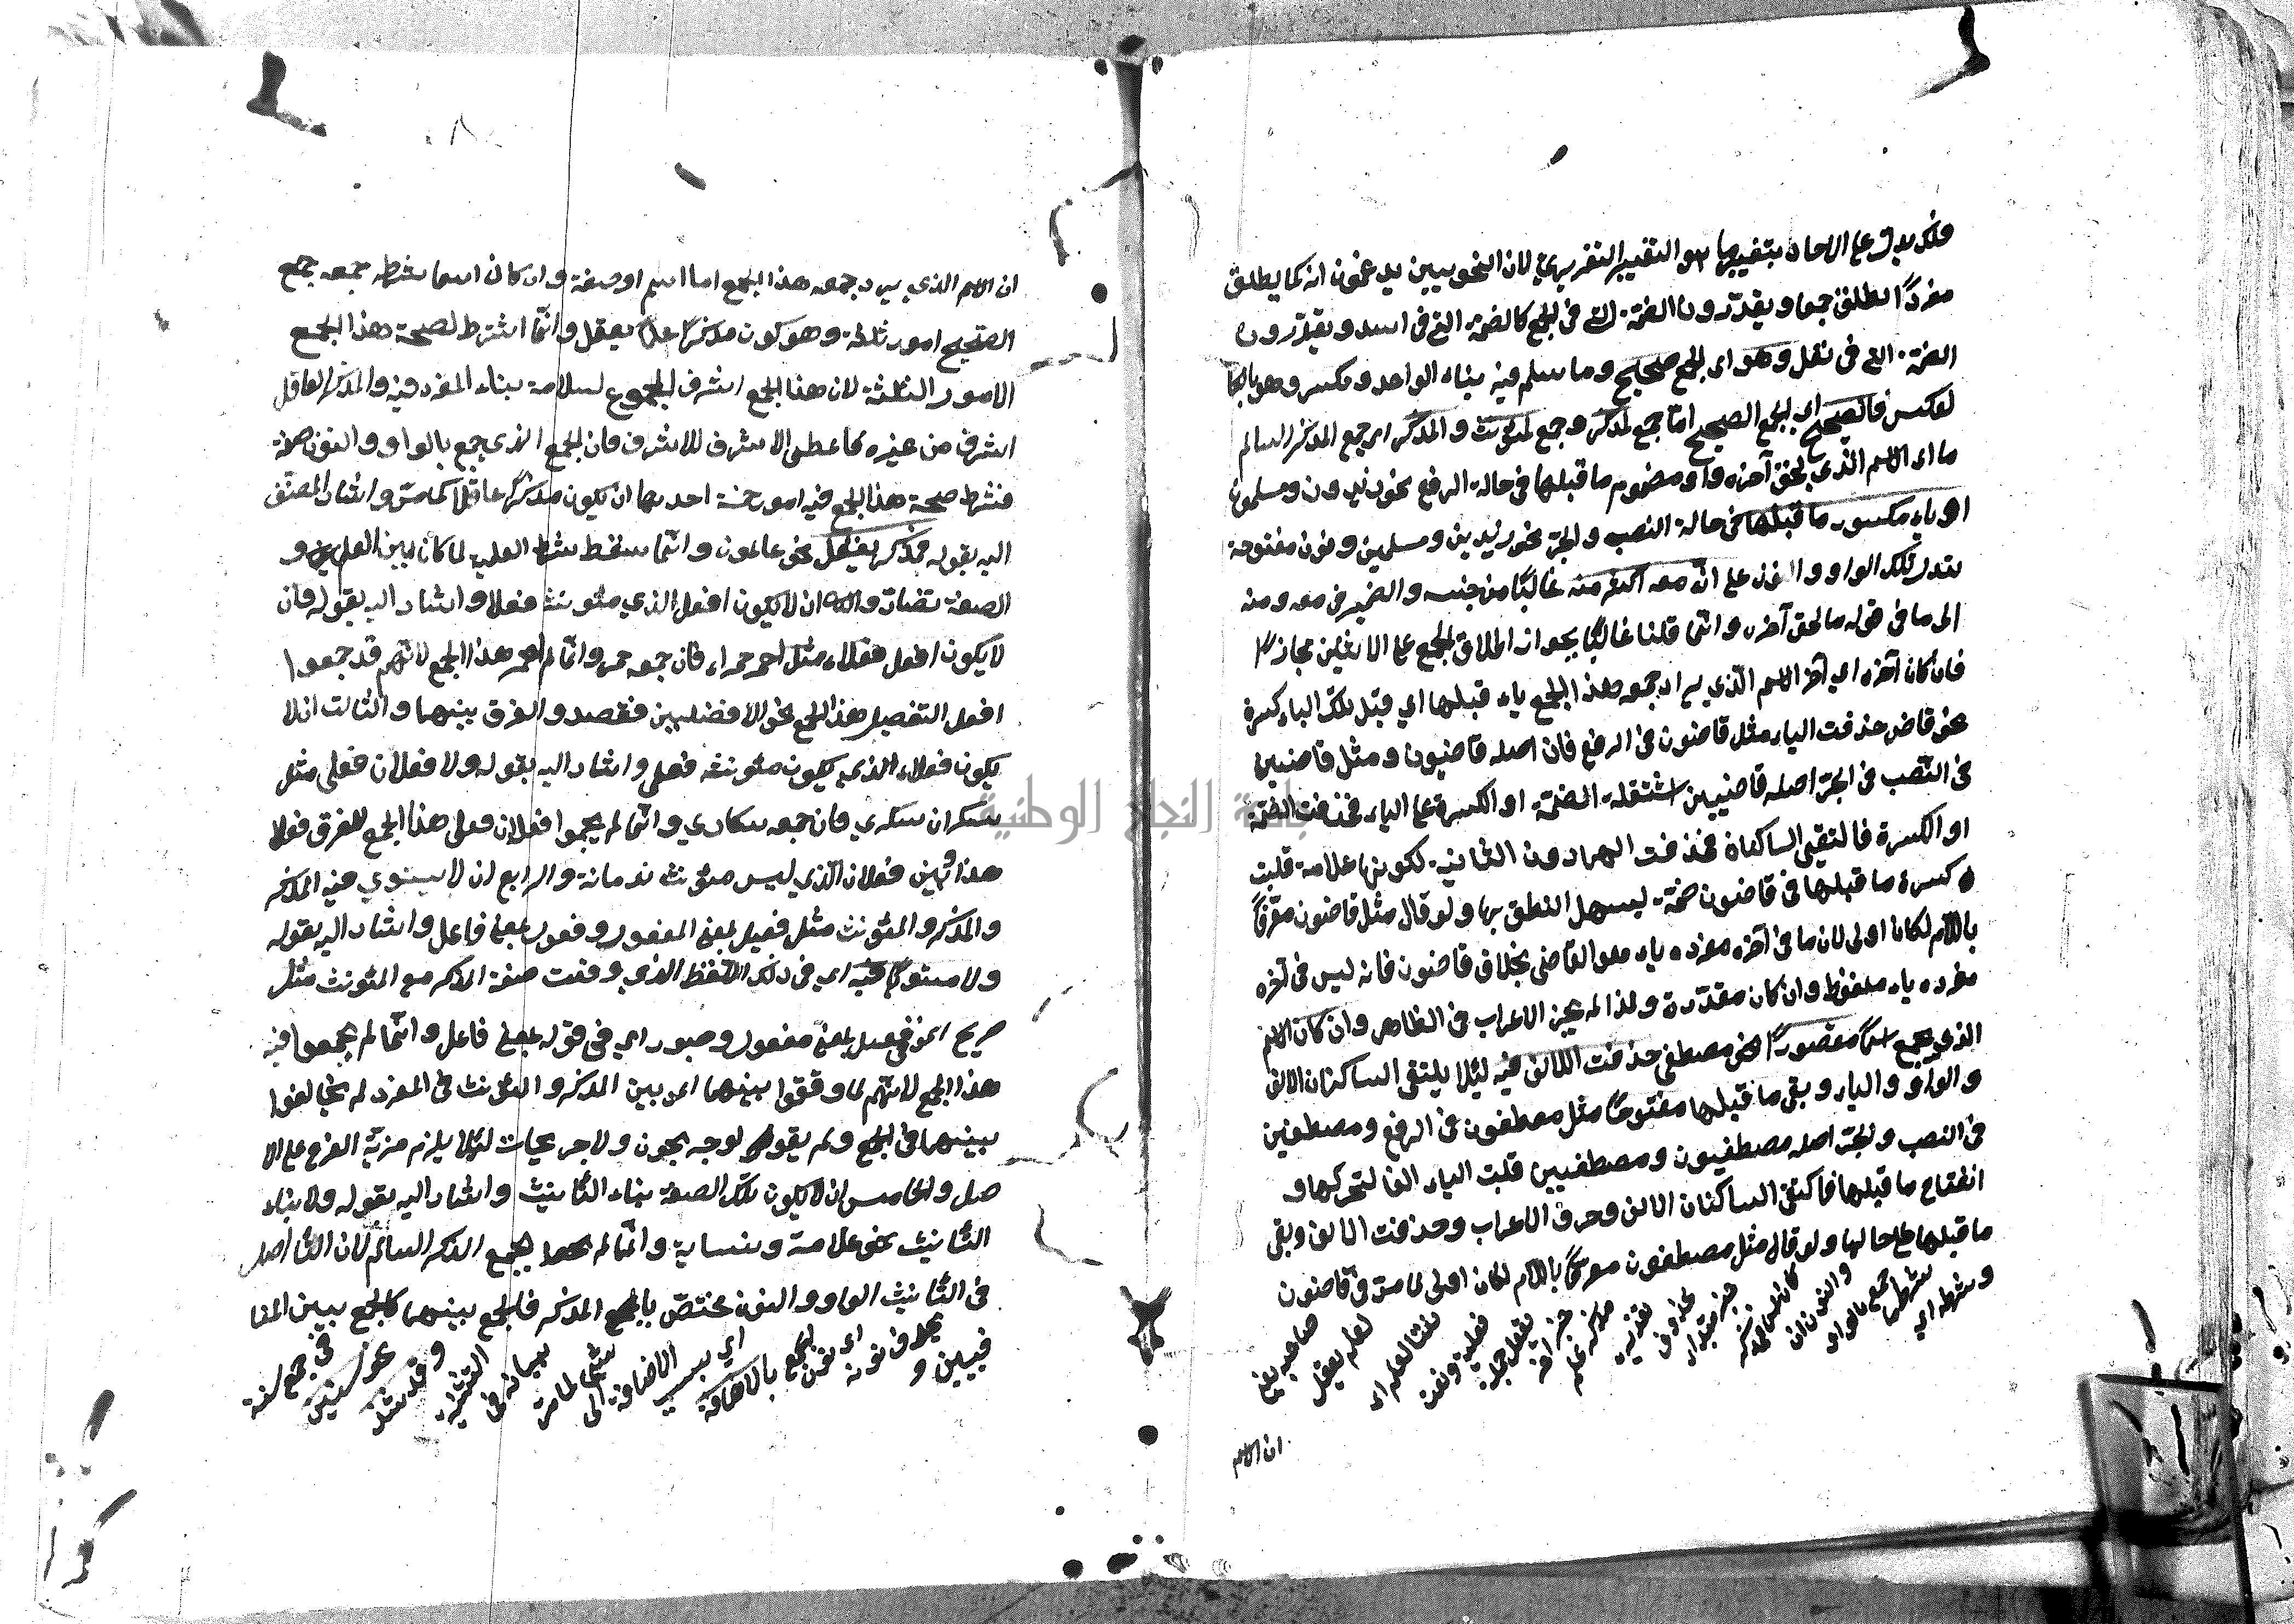 فلك يدل على الاحاد بتغييرها هو التغيير التقديري لان النحويين يدعون انه كما يطلق
مفردًا يطلق جمعا ويقدّرون الضمة التي في الجمع كالضمة التي في اسد ويقدّرون
الضمة التي في نقل وهو اي الجمع صحيح وما سلم فيه بناء الواحد ومكسر وهو با
لعكس فالصحيح اي الجمع الصحيح امّا جمع لمذكر وجمع لمئونث والمذكر اي جمع المذكر السالم
ما اي الاسم الّذي لحق آخره واو مضموم ما قبلها في حالة الرفع نحو زيدون ومسلمون
او ياء مكسور ما قبلها في حالة النصب والجرّ نحو زيدين ومسلمين ونون مفتوحة
تدل تلك الواو والنون على انّ معه اكثر منه غالبًا من جنسه والضمير في معه ومنه
الى ما في قوله ما لحق آخره وانّما قلنا غالبًا بجواز اطلاق الجمع على الاثنين مجازًا
فان كان آخره اي آخر الاسم الّذي يراد جمعه هذا الجمع ياء قبلها اي قبل تلك الياء كسرة
نحو قاض حذفت الياء مثل قاضون في الرفع فان اصله قاضيون ومثل قاضين
في النّصب في الجرّ اصله قاضيين استثقلة الضمّة او الكسرة على الياء فحذفت الضمّة
او الكسرة فالتقى الساكناة فحذفت الياء دون الثانية لكونها علامة قلبت
كسرة ما قبلها في قاضون ضمّة ليسهل النطق بها ولو قال مثل قاضون معرّفًا
باللّام لكان اولى لان ما في آخره مفرده ياء هو القاضي بخلاف قاضون فانه ليس في آخره
مفرده ياء ملفوظ وان كان مقدّرة ولذا لم يجز الاعراب في الظاهر وان كان الاسم
الذي يجمع اسمًا مقصورًا نحو مصطفى حذفت الالف فيه ليئلا يلتقى الساكنان الالف
والواو والياء وبقى ما قبلها مفتوحًا مثل مصطفون في الرفع ومصطفين
في النصب والجرّ اصله مصطفيون ومصطفيين قلبت الياء الفا لتحركها و
انفتاح ما قبلها فالتقى الساكنان الالف وحرف الاعراب وحذفت الالف وبقى
ما قبلها على حالها ولو قال مثل مصطفون معرفًا باللام لكان اولى لما مرّ في قاضون
وشرطه اي
شرط جمع بالواو
والنون ان
كان اسما فمذكر
خبر مبتداء
محذوف
تقديره
مذكر علم
خبر اخر
يعقل جملة
فعلية
لعلم يعقل
صاحبه يعني
ان الاسم
ان الاسم الذي يراد جمعه هذا الجمع اما اسم او صفة وان كان اسما شرطه جمعه جمع
الصحيح امور ثلثة وهو كون مذكرًا علمًا يعقل وانّما اشترط لصحة هذا الجمع
الامور الثلثة لان هذا الجمع اشرف الجموع لسلامة بناء المفرد فيه والمذكر العاقل
اشرف من غيره فاعطى الاشرف للاشرف فان الجمع الذي يجمع بالواو والنون صفة
فشرط صحة هذا الجمع فيه امور خمسة احديها ان يكون مذكرًا عاقلًا كما مرّ واشار المصنّف
اليه بقوله فمذكر يعقل نحو عالمون وانّما سقط شرط العلمية لما كان بين العلمين و
الصفة تضاد والثاني ان لا يكون افعل الذي مئونث فعلاء واشار اليه بقوله فان
لا يكون افعل فعلاء مثل احمر حمراء فان جمعه حمر وانّما لم يجمع هذا الجمع لانّهم قد جمعوا
افعل التفضيل هذا الجمع نحو الافضليين فقصدو الفرق بينهما والثالث ان لا
يكون فعلان الذي يكون مئونثه فعلى واشار اليه بقوله ولا فعلان فعلى مثل
سكران سكرى فان جمعه سكارى وانّما لم يجمعوا فعلان فعلى هذا الجمع للفرق فعلا
هذا وبين فعلان الّذي ليس مئونث ندمانة والرابع ان لا يستوي فيه المذكر
والمذكر والمئونث مثل فعيل بمعنى المفعول وفعول بمعنى فاعل واشار اليه بقوله
ولا مستويًا فيه اي في ذلك اللّفظ الذي وقعت صفة المذكر مع المئونث مثل
جريح اي فعيل بمعنى مفعول وصبور اي في قوله بمعنى فاعل وانّما لم يجمعوا فيه
هذا الجمع لانّهم لما وفقوا بينهما اي بين المذكر والمئونث في المفرد لم يخالفوا
بينهما في الجمع ولم يقولوا لوجه يجون ولا جريحات لئلا يلزم مزيّة الفرع على الا
صل والخامس ان لا يكون تلك الصفة بتاء التّأنيث واشار اليه بقوله ولا بتاء
التّأنيث نحو علامة ونسابة وانّما لم يجمع الذكر السالم لان التّاء اصل
في التّأنيث الواو والنون مختصّ بالجمع المذكر فالجمع بينهما كالجمع بين المتنا
فيين و
يحذف نونه
اي نون الجمع بالاضافة
اي بسبب
الاضافة الى
شئ لما مر
بيانه في
التثنية
وقد شذّ
نحو سنين
في جمع سنة
جامعة النجاح الوطنية